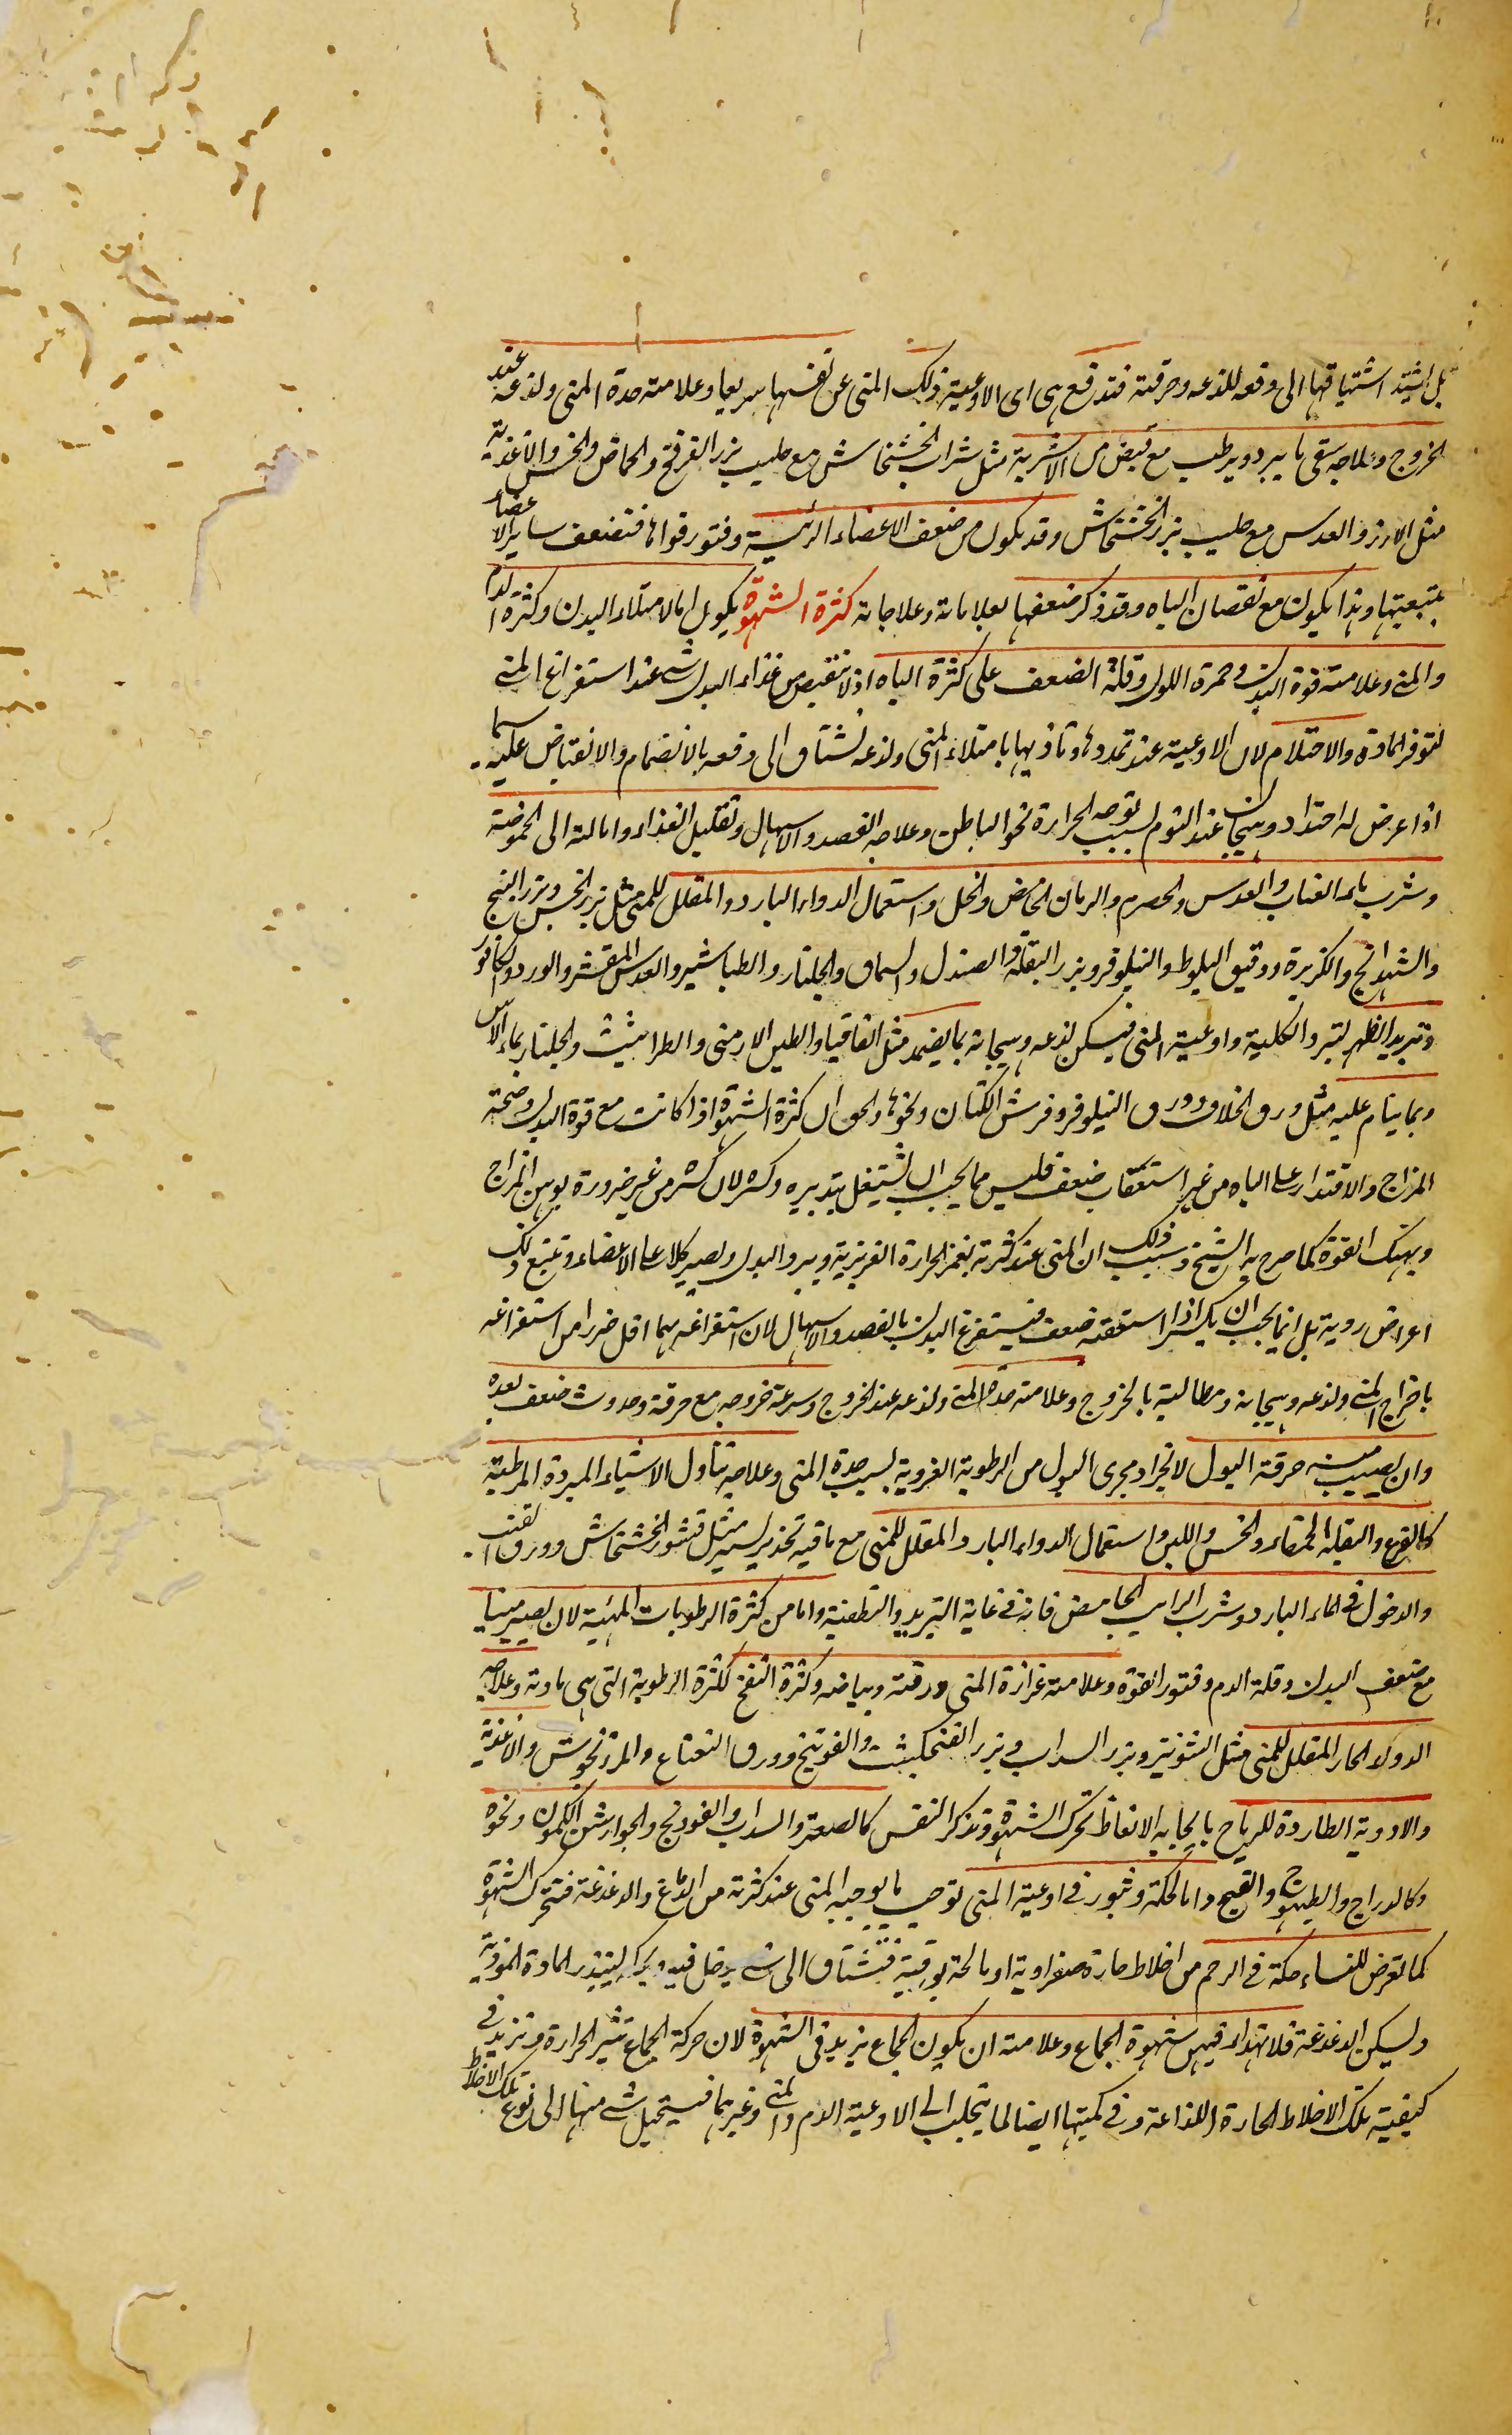 بل اشتد اشتياقها الى دفعه للذعه وحرقته فتدفع هى اى الاوعية ذلك المنى عن نفسها سريعا وعلامته حدة المنى ولذعه عند
الخروج وعلاجه سقى ما يبرد ويرطب مع قبض من الاشربة مثل شراب الخشخاش مع حليب بزر الفرفخ والحماض والخس والاغذية
مثل الارز والعدس مع حليب بزر الخشخاش وقد يكون من ضعف الاعضاء الرئيسية وفتور قواها فتضعف ساير الاعضاء
بتبعيتها وهذا يكون مع نقصان الباه وقد ذكر ضعفها بعلاماته وعلاجاته كثرة الشهوة يكون اما لامتلاء البدن وكثرة الدم
والمنى وعلامته قوة البدن وحمرة اللون وقلة الضعف على كثرة الباه اذ لا ينقص من غذاء البدن شى عند استفراغ المنى
لتوفر المادة والاحتلام لان الاوعية عند تمددها وتاذيها بامتلاء المنى ولذعه تشتاق الى دفعه بالانضمام والانقباض عليه سيما
اذا عرض له احتداد وهيجان عند النوم لسبب توجه الحرارة نحو الباطن وعلاجه الفصد والاسهال وتقليل الغذاء وامالته الى الحموضة
وشرب ماء العناب والعدس والحصرم والرمان الحامض والخل واستعمال الدواء البارد والمقلل للمنى مثل بزر الخس وبزر البنج
والشهدانج والكزبرة ودقيق البلوط والنيلوفر وبزر البقلة والصندل والسماق والجلنار والطباشير والعدس المقشر والورد والكافور
وتبريد الظهر لتبرد الكلية واوعية المنى فيسكن لذعه وهيجانه بما يضمد مثل اقاقيا والطين الارمنى والطراثيث والجلنار بماء الاس
وبما ينام عليه مثل ورق الخلاف وورق النيلوفر وفرش الكتان ونحوها والحق ان كثرة الشهوة اذا كانت مع قوة البدن وصحة
المزاج والاقتدار على الباه من غير استعقاب ضعف فليس مما يجب ان يشتغل بتدبيره وكسره لان كسره من غير ضرورة يوهن المزاج
وينهك القوة كما صرح به الشيخ وسبب ذلك ان المنى عند كثرته يغمر الحرارة الغريزية ويبرد البدن ويصير كلا على الاعضاء وتتبع ذلك
اعراض ردية بل انما يجب ان يكسر اذا استعقبه ضعف فيستفرغ البدن بالفصد والاسهال لان استفراغه بهما اقل ضررا من استفراغه
باخراج المنى ولذعه وهيجانه ومطالبته بالخروج وعلامته حدة المنى ولذعه عند الخروج وسرعة خروجه مع حرقة وحدوث ضعف بعده
وان يصيب منه حرقة البول لانجراد مجرى البول من الرطوبة الغروية بسبب حدة المنى وعلاجه تناول الاشياء المبردة المرطبة
كالقرع والبقلة الحمقاء والخس واللبن واستعمال الدواء البارد والمقلل للمنى مع ما فيه تخدير يسير مثل قشور الخشخاش وورق القنب
والدخول فى الماء البارد وشرب الرايب الحامض فانه فى غاية التبريد والتطفية واما من كثرة الرطوبات المنية لان يصير منيا
مع ضعف البدن وقلة الدم وفتور القوة وعلامته غزارة المنى ورقته وبياضه وكثرة النفخ لكثرة الرطوبة التى هى مادته وعلاجه
الدواء الحار المقلل للمنى مثل الشونيز وبزر السداب وبزر الفنجنكشت والفوتنج وورق النعناع والمرزنجوش والاغذية
والادوية الطاردة للرياح بايجابه الانعاظ تحرك الشهوة وتذكر النفس كالصعتر والسداب والفودنج والجوارشن الكمونى ونحوه
وكالدراج والطيهوج والقبج واما لحكة وبثور فى اوعية المنى توجب ما يوجبه المنى عند كثرته من اللذع والدغدغة فتحرك الشهوة
كما تعرض للنساء حكة فى الرحم من اخلاط حارة صفراوية او مالحة بورقية فتشتاق الى شى يدخل فيه ويحركه لينثر المادة الموذية
ويسكن الدغدغة فلا تهدا فيهن شهوة الجماع وعلامته ان يكون الجماع يزيد فى الشهوة لان حركة الجماع تثير الحرارة وتزيد فى
كيفية تلك الاخلاط الحارة اللذاعة وفى كميتها ايضا لما يتحلب الى الاوعية الدم والمنى وغيرهما فيستحيل شى منها الى نوع تلك الاخلاط